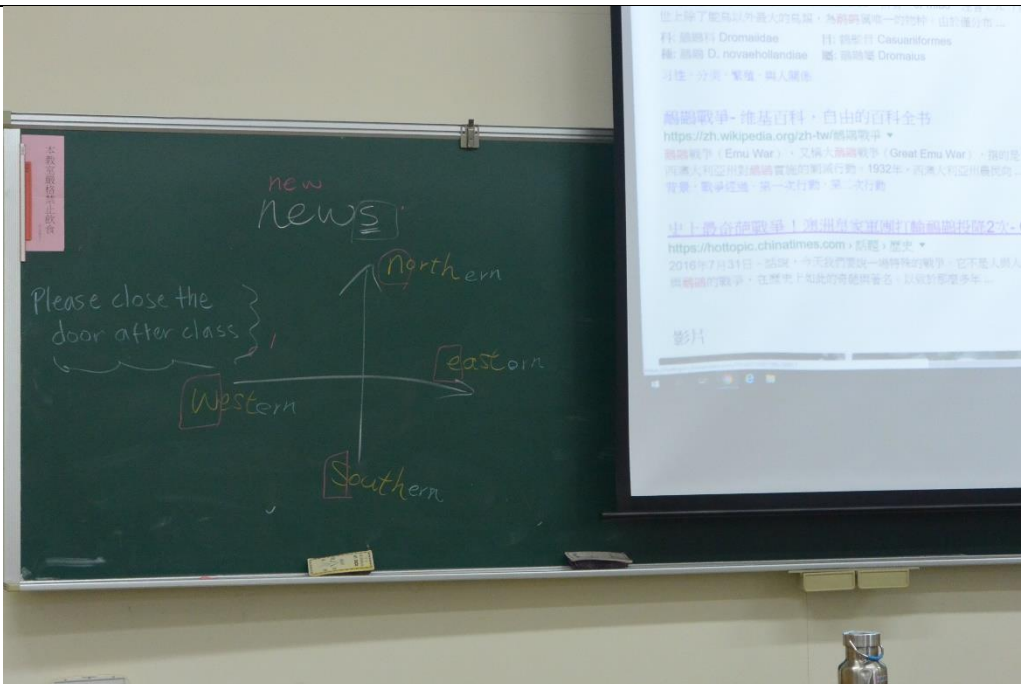 本教室嚴格禁止飲食
new
news
northern
Please close the
door after class
eastorn
Western
Southern
科: 鴯鶓科 Dromaiidae
目: 鶴鴕目 Casuariiformes
種: 鴯鶓 D. novaehollandiae
屬: 鴯鶓屬 Dromaius
習性 · 分類 · 繁殖 · 與人關係
鴯鶓戰爭- 维基百科,自由的百科全书
https://zh.wikipedia.org/zh-tw/鴯鶓戰爭
鴯鶓戰爭(Emu War),又稱大鴯鶓戰爭(Great Emu War),指的是
背景 · 戰爭經過 · 第一次行動 · 第二次行動
史上最奇葩戰爭!澳洲皇家軍團打輸鴯鶓投降2次-
https://hottopic.chinatimes.com › 話題 › 歷史
影片